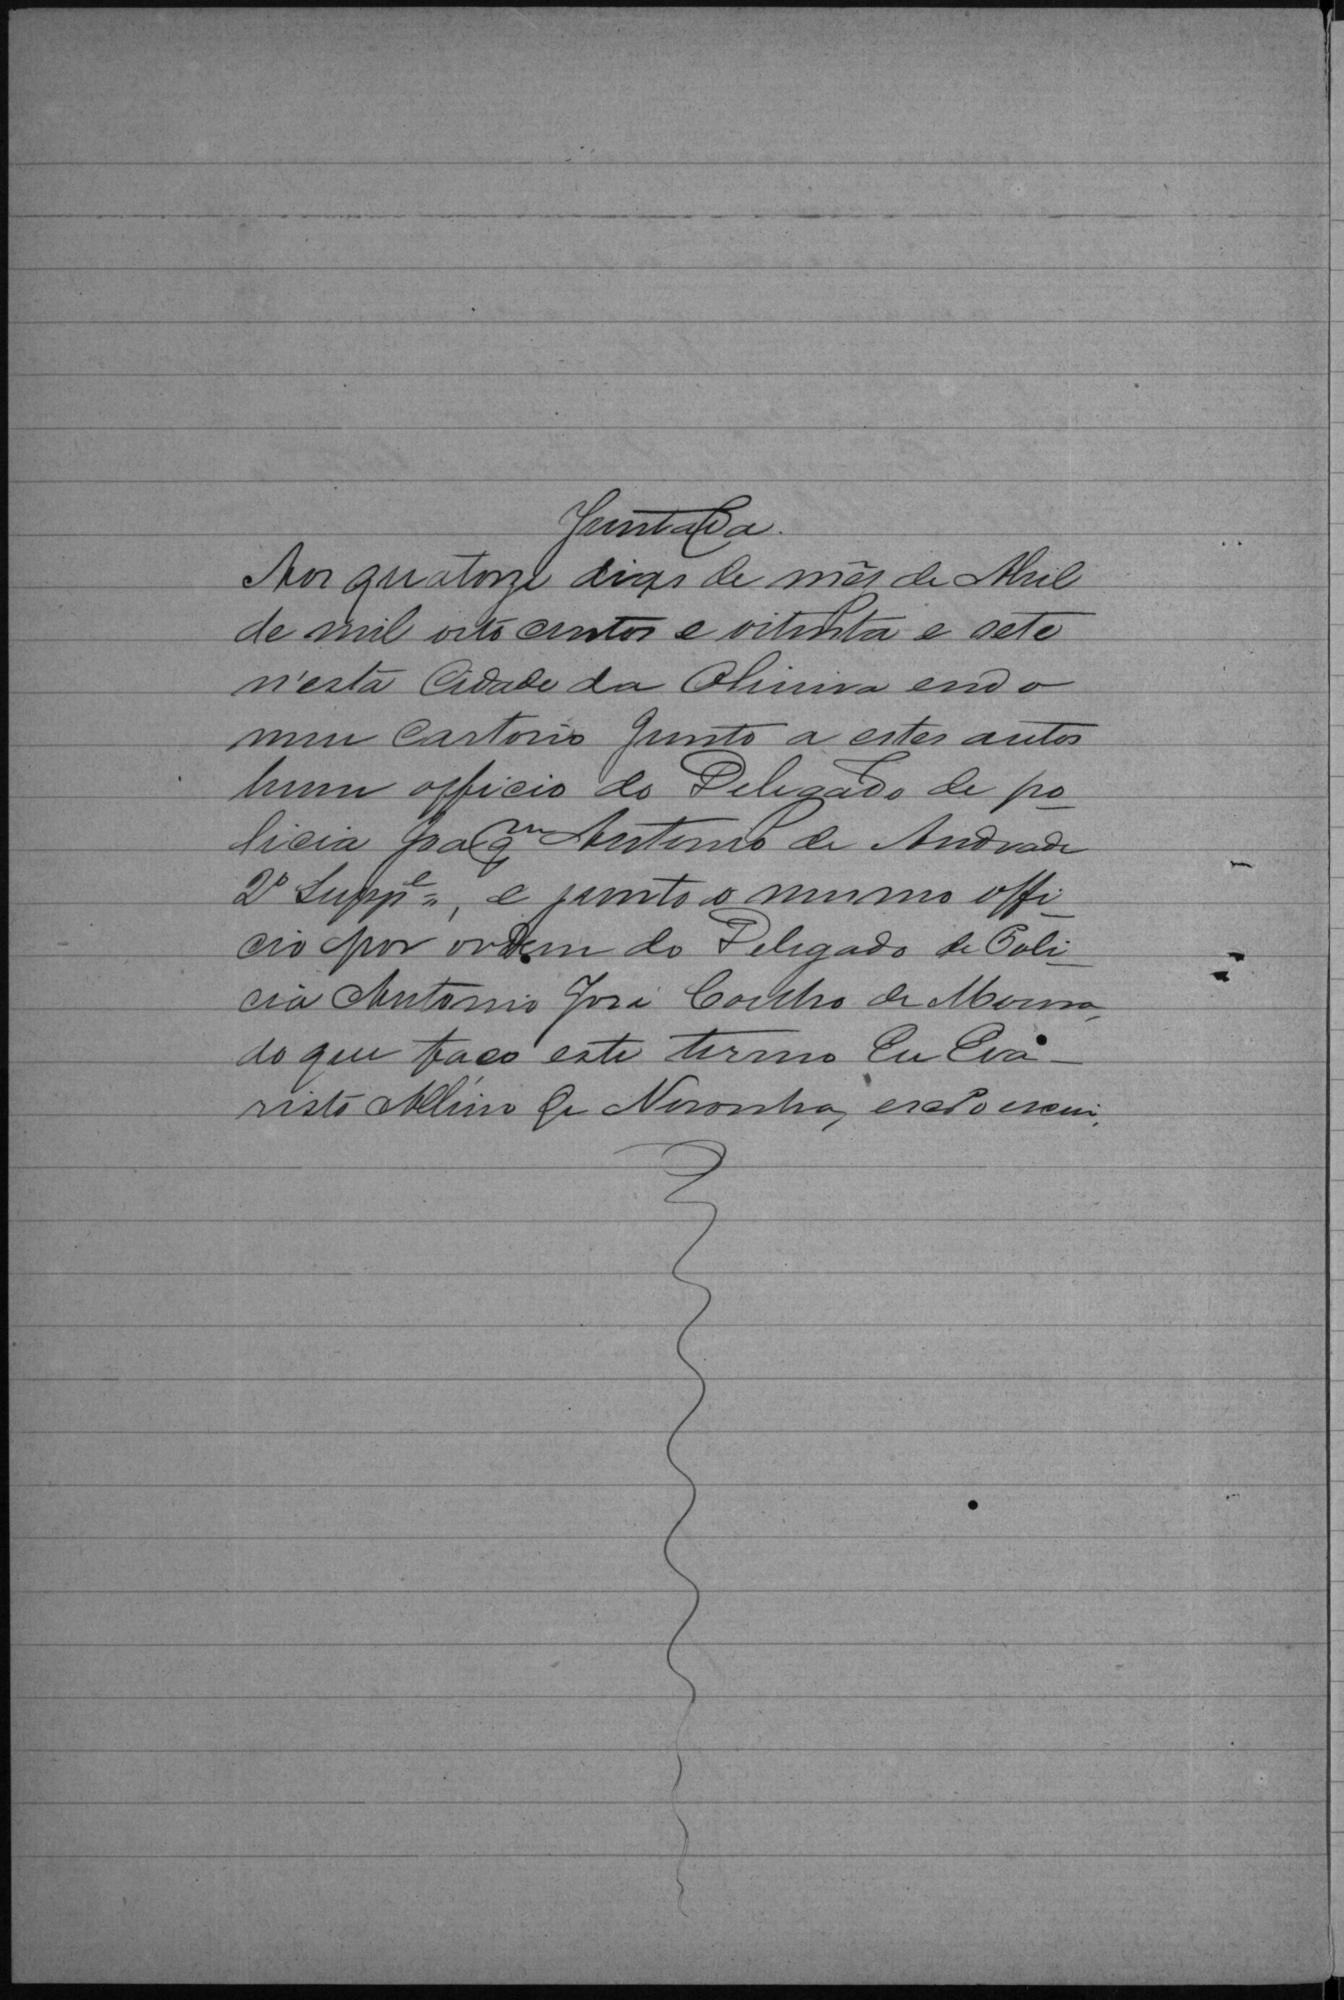 Juntada.
Aos quatorze dias de mês de Abril
de mil oito centos e oitenta e sete
n'esta Cidade da Oliveira em o
meu Cartorio junto a estes autos
hum officio do Delegado de po_
licia Joaqm Antonio de Andrade
2º Suppe, e junto o mesmo offi_
cio por ordem do Delegado de Poli_
cia Antonio José Coelho de Moura,
do que faco este termo Eu Eva_
risto Albino de Noronha, escrivão